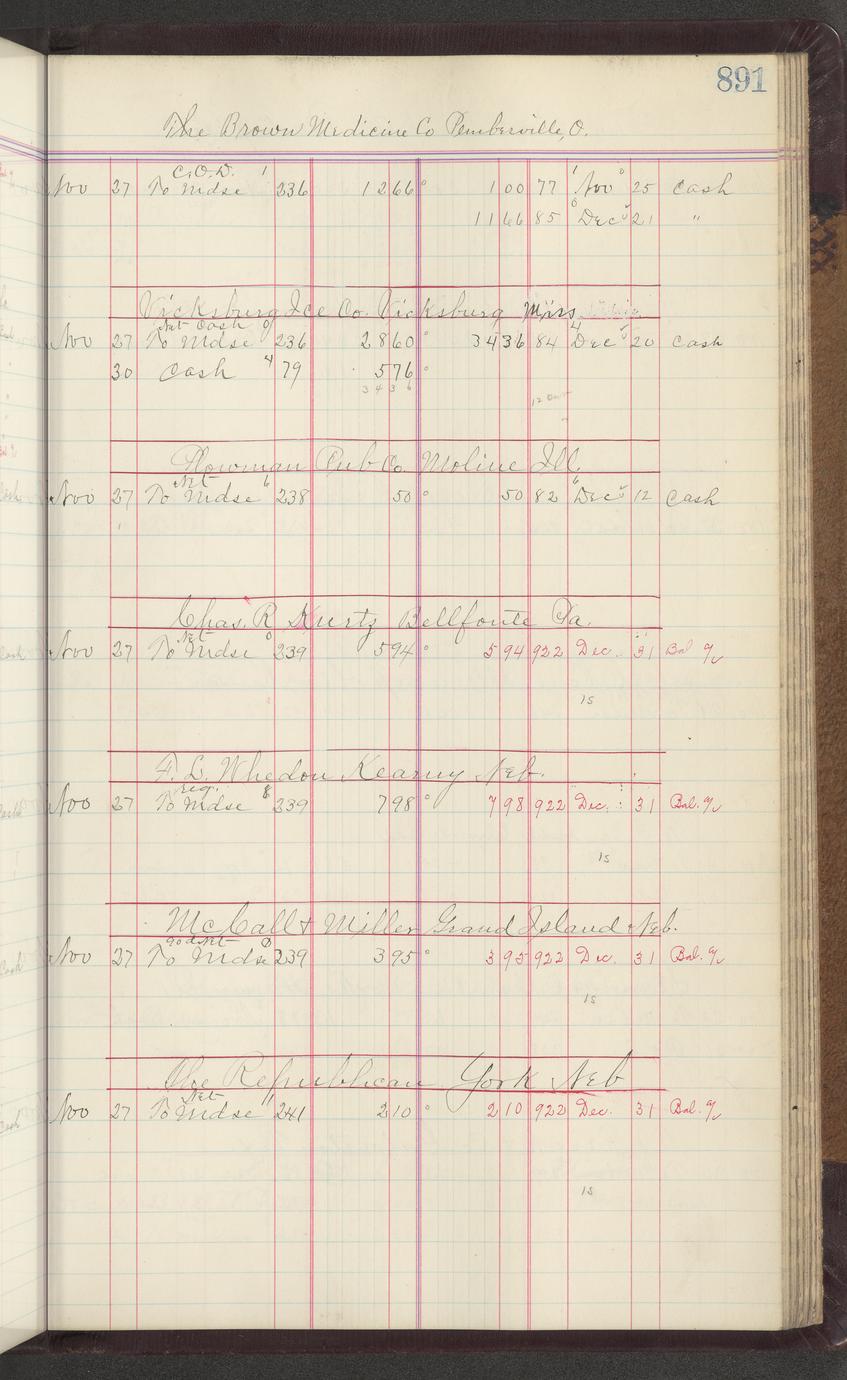 891
The Brown Medicine Co Pemberville, O.
C.O.D. 1
Nov 27 To Mdse 236 1266 1 00 77 Nov 25 Cash
11 66 85 Dec 21 "
Vicksburg Ice Co. Vicksburg Miss
Net Cash
Nov 27 To Mdse 236 2860 34 36 84 Dec 20 Cash
30 Cash 4 79 576
3 4 3 6
Plowman Pub Co. Moline Ill
Net 6
Nov 27 To Mdse 238 50 50 82 Dec 12 Cash
Chas. R Kurtz Bellfonte Pa.
Net 0
Nov 27 To Mdse 239 594 5 94 922 Dec. 31 Bal a/c
15
F. L. Whedon Kearny Neb.
reg. 8
Nov 27 To Mdse 239 798 7 98 922 Dec. 31 Bal. a/c
15
McCall & Miller Grand Island Neb.
90 d Net
Nov 27 To Mdse 239 395 3 95 922 Dec. 31 Bal. a/c
15
The Republican York Neb
Net 11
Nov 27 To Mdse 241 210 2 10 922 Dec. 31 Bal. a/c
15